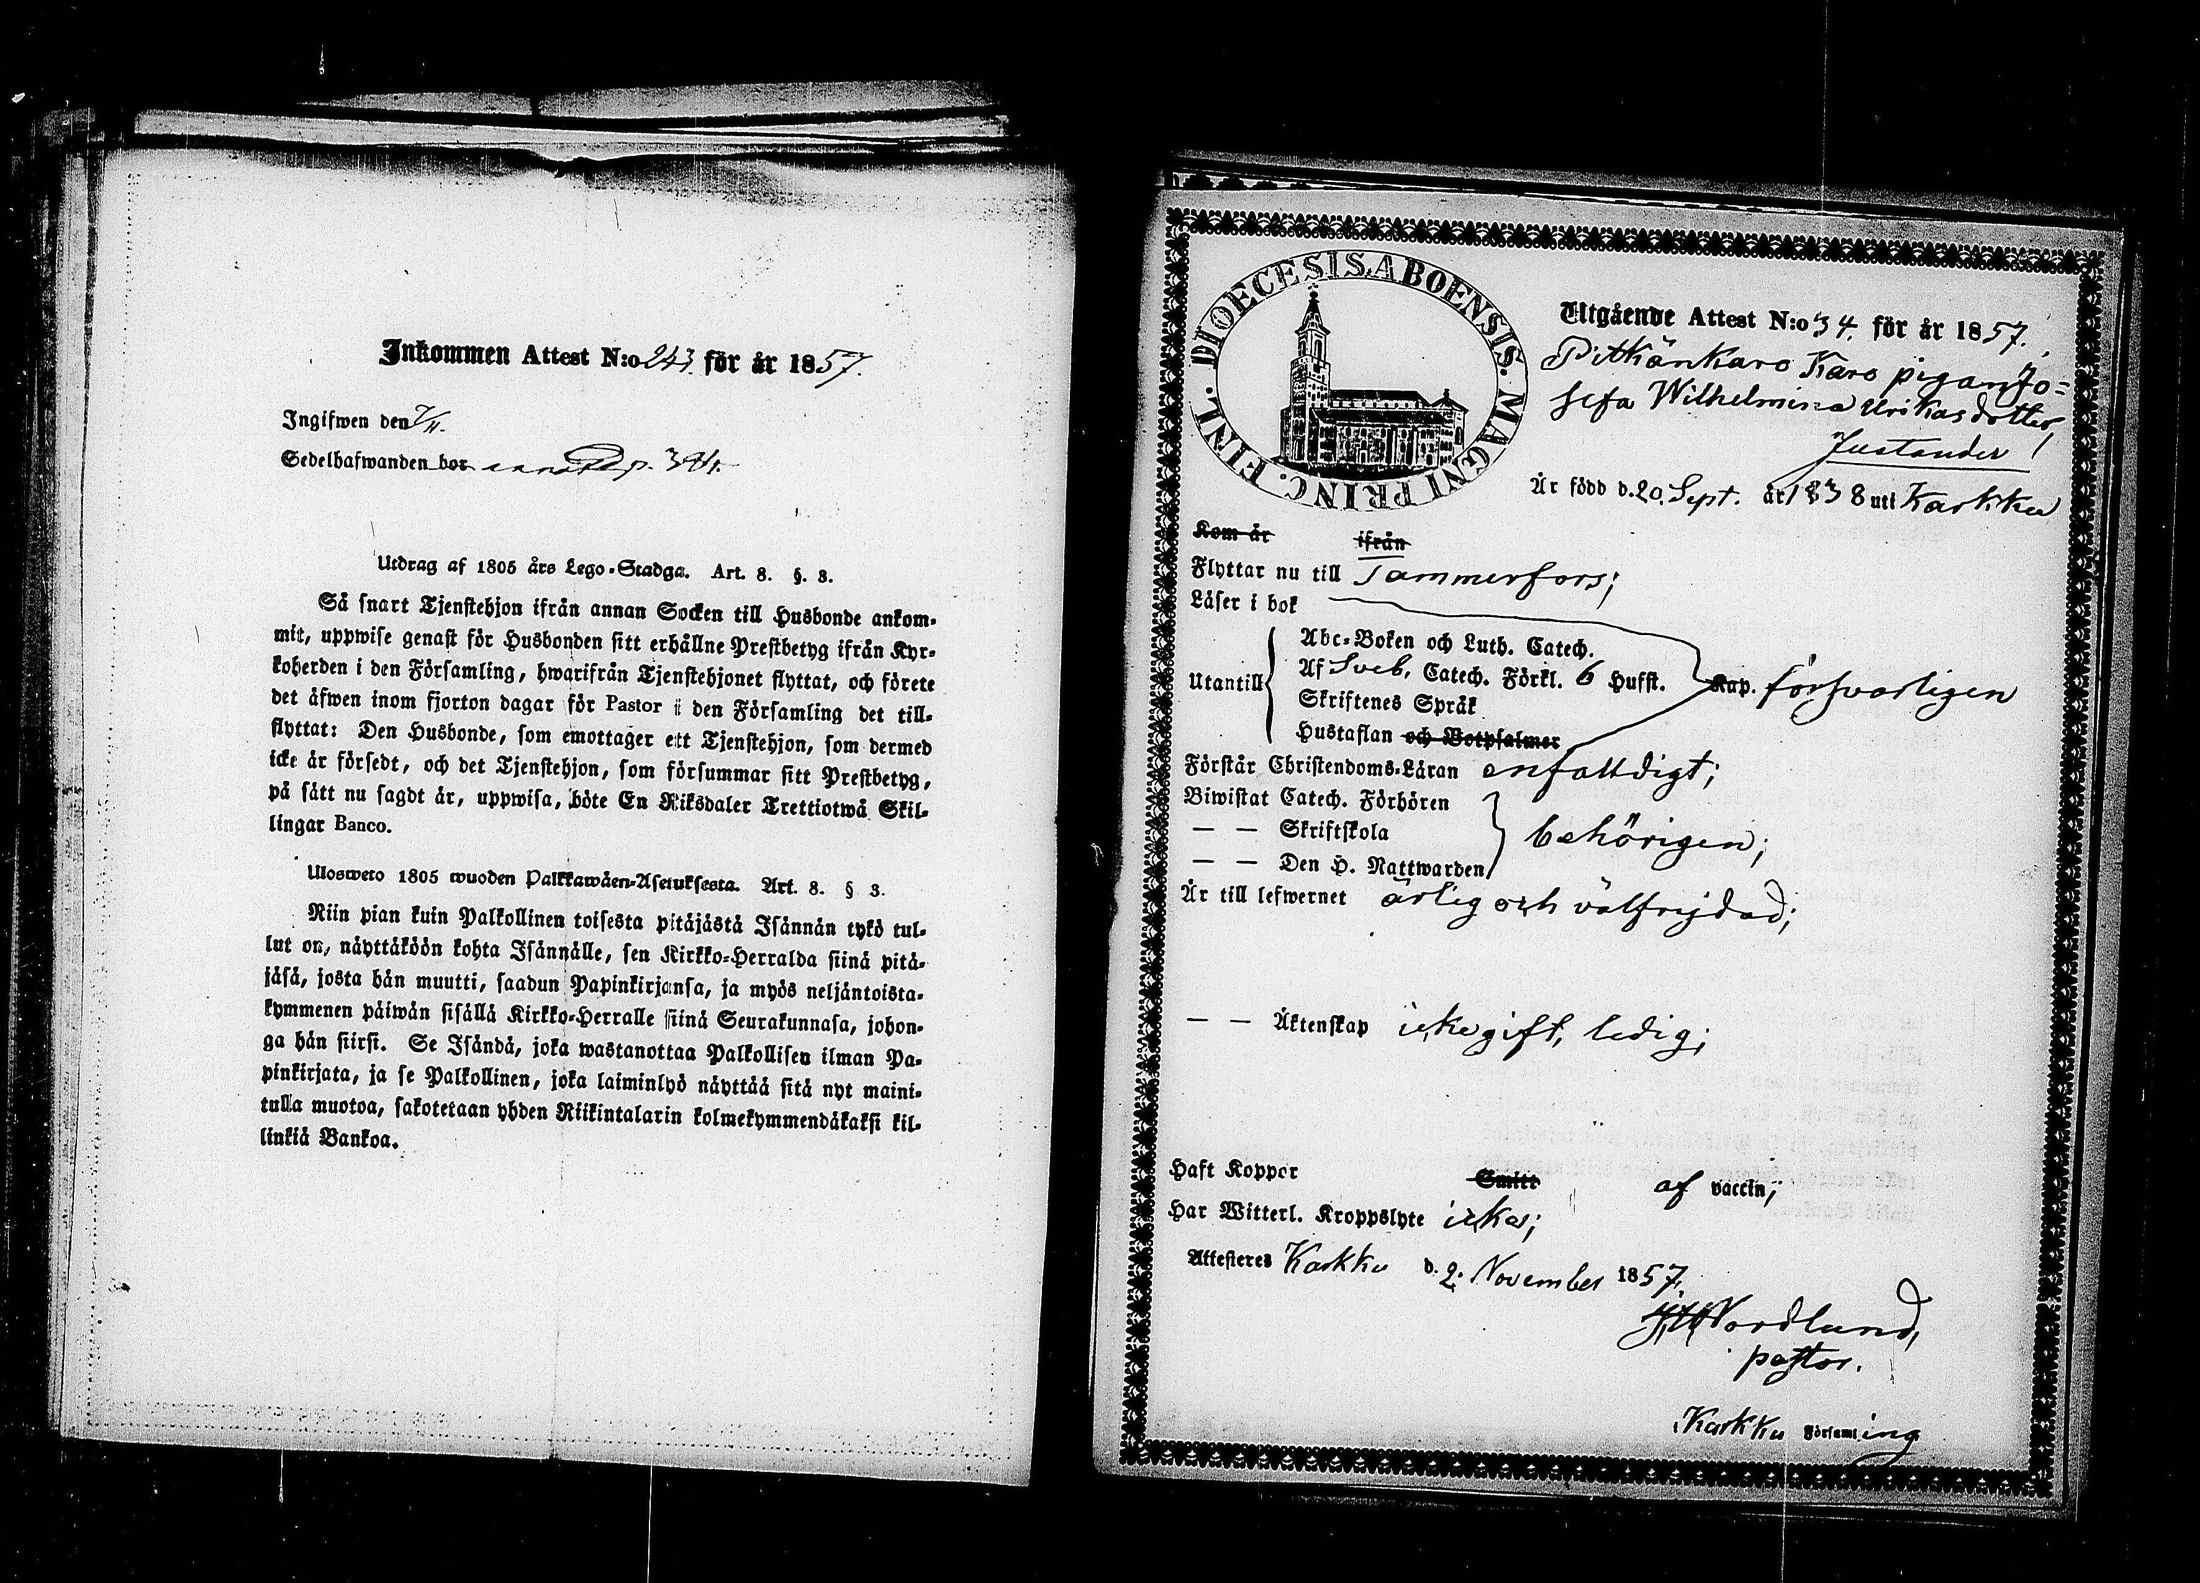 Inkommen Attest N:o 243. för år 1857.
Ingifwen den 7/11.
Sedelhafwanden bor
Utdrag af 1805 års Lego-Stadga. Art. 8. §. 3.
Så snart Tjenstehjon ifrån annan Socken till Husbonde ankom-
mit, uppwise genast för Husbonden sitt erhållne Prestbetyg ifrån Kyr-
koherden i den Församling, hwarifrån Tjenstehjonet flyttat, och förete
det äfwen inom fjorton dagar för Pastor i den Församling det till-
flyttat: Den Husbonde, som emottager ett Tjenstehjon, som dermed
icke är försedt, och det Tjenstehjon, som försummar sitt Prestbetyg,
på sätt nu sagdt är, uppwisa, böte En Riksdaler Trettiotwå Skil-
lingar Banco.
Ulosweto 1805 wuoden Palkkawäen-Asetuksesta. Art. 8. § 3.
Niin pian kuin Palkollinen toisesta pitäjästä Isännän tykö tul-
lut on, näyttäköön kohta Isännälle, sen Kirkko-Herralda siinä pitä-
jäsä, josta hän muutti, saadun Papinkirjansa, ja myös neljäntoista-
kymmenen päiwän sisällä Kirkko-Herralle siinä Seurakunnasa, johon-
ga hän siirsi. Se Isändä, joka wastanottaa Palkollisen ilman Pa-
pinkirjata, ja se Palkollinen, joka laiminlyö näyttää sitä nyt maini-
tulla muotoa, sakotetaan yhden Riikintalarin kolmekymmendäkaksi kil-
linkiä Bankoa.
DIOECESIS ABOENSIS. MAGNI PRINC. FINL.
Utgående Attest N:o 34. för år 1857.
Pitkänkaro Karo pigan Jo=
sefa Wilhelmina Ulrikasdotter
Justander
Är född d. 20. Sept. år 1838 uti Karkku
Kom år ifrån
Flyttar nu till Tammerfors;
Läser i bok
Abc-Boken och Luth. Catech.
Utantill Af Sveb. Catech. Förkl. 6 Hufst. Kap. försvarligen
Skriftenes Språk
Hustaflan och Botpsalmer
Förstår Christendoms-Läran enfalldigt;
Biwistat Catech. Förhören
— — Skriftskola behörigen;
— — Den H. Nattwarden
Är till lefwernet ärlig och välfrejdad;
— — Äktenskap icke gift, ledig;
Haft Koppor Smitt af vaccin;
Har Witterl. Kroppslyte icke;
Attesteres Karkku d. 2. November 1857.
Nordlund,
pastor.
Karkku Församling